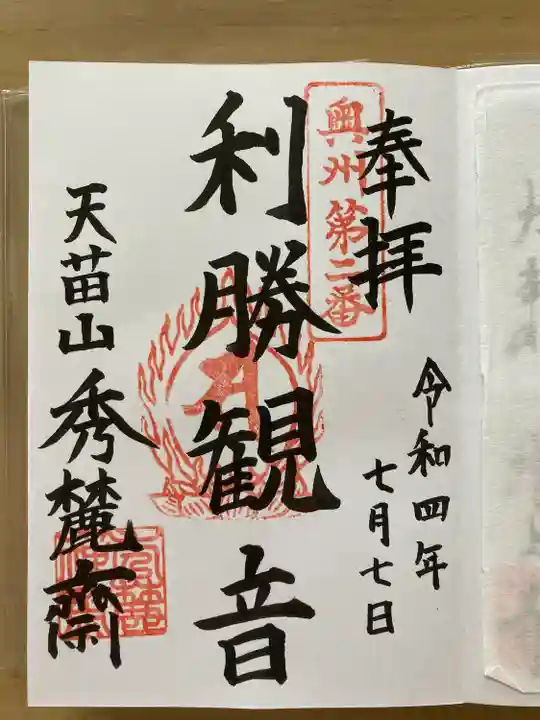 奉拝
奥州第二番
令和四年
七月七日
利勝観音
天苗山
秀麓齋